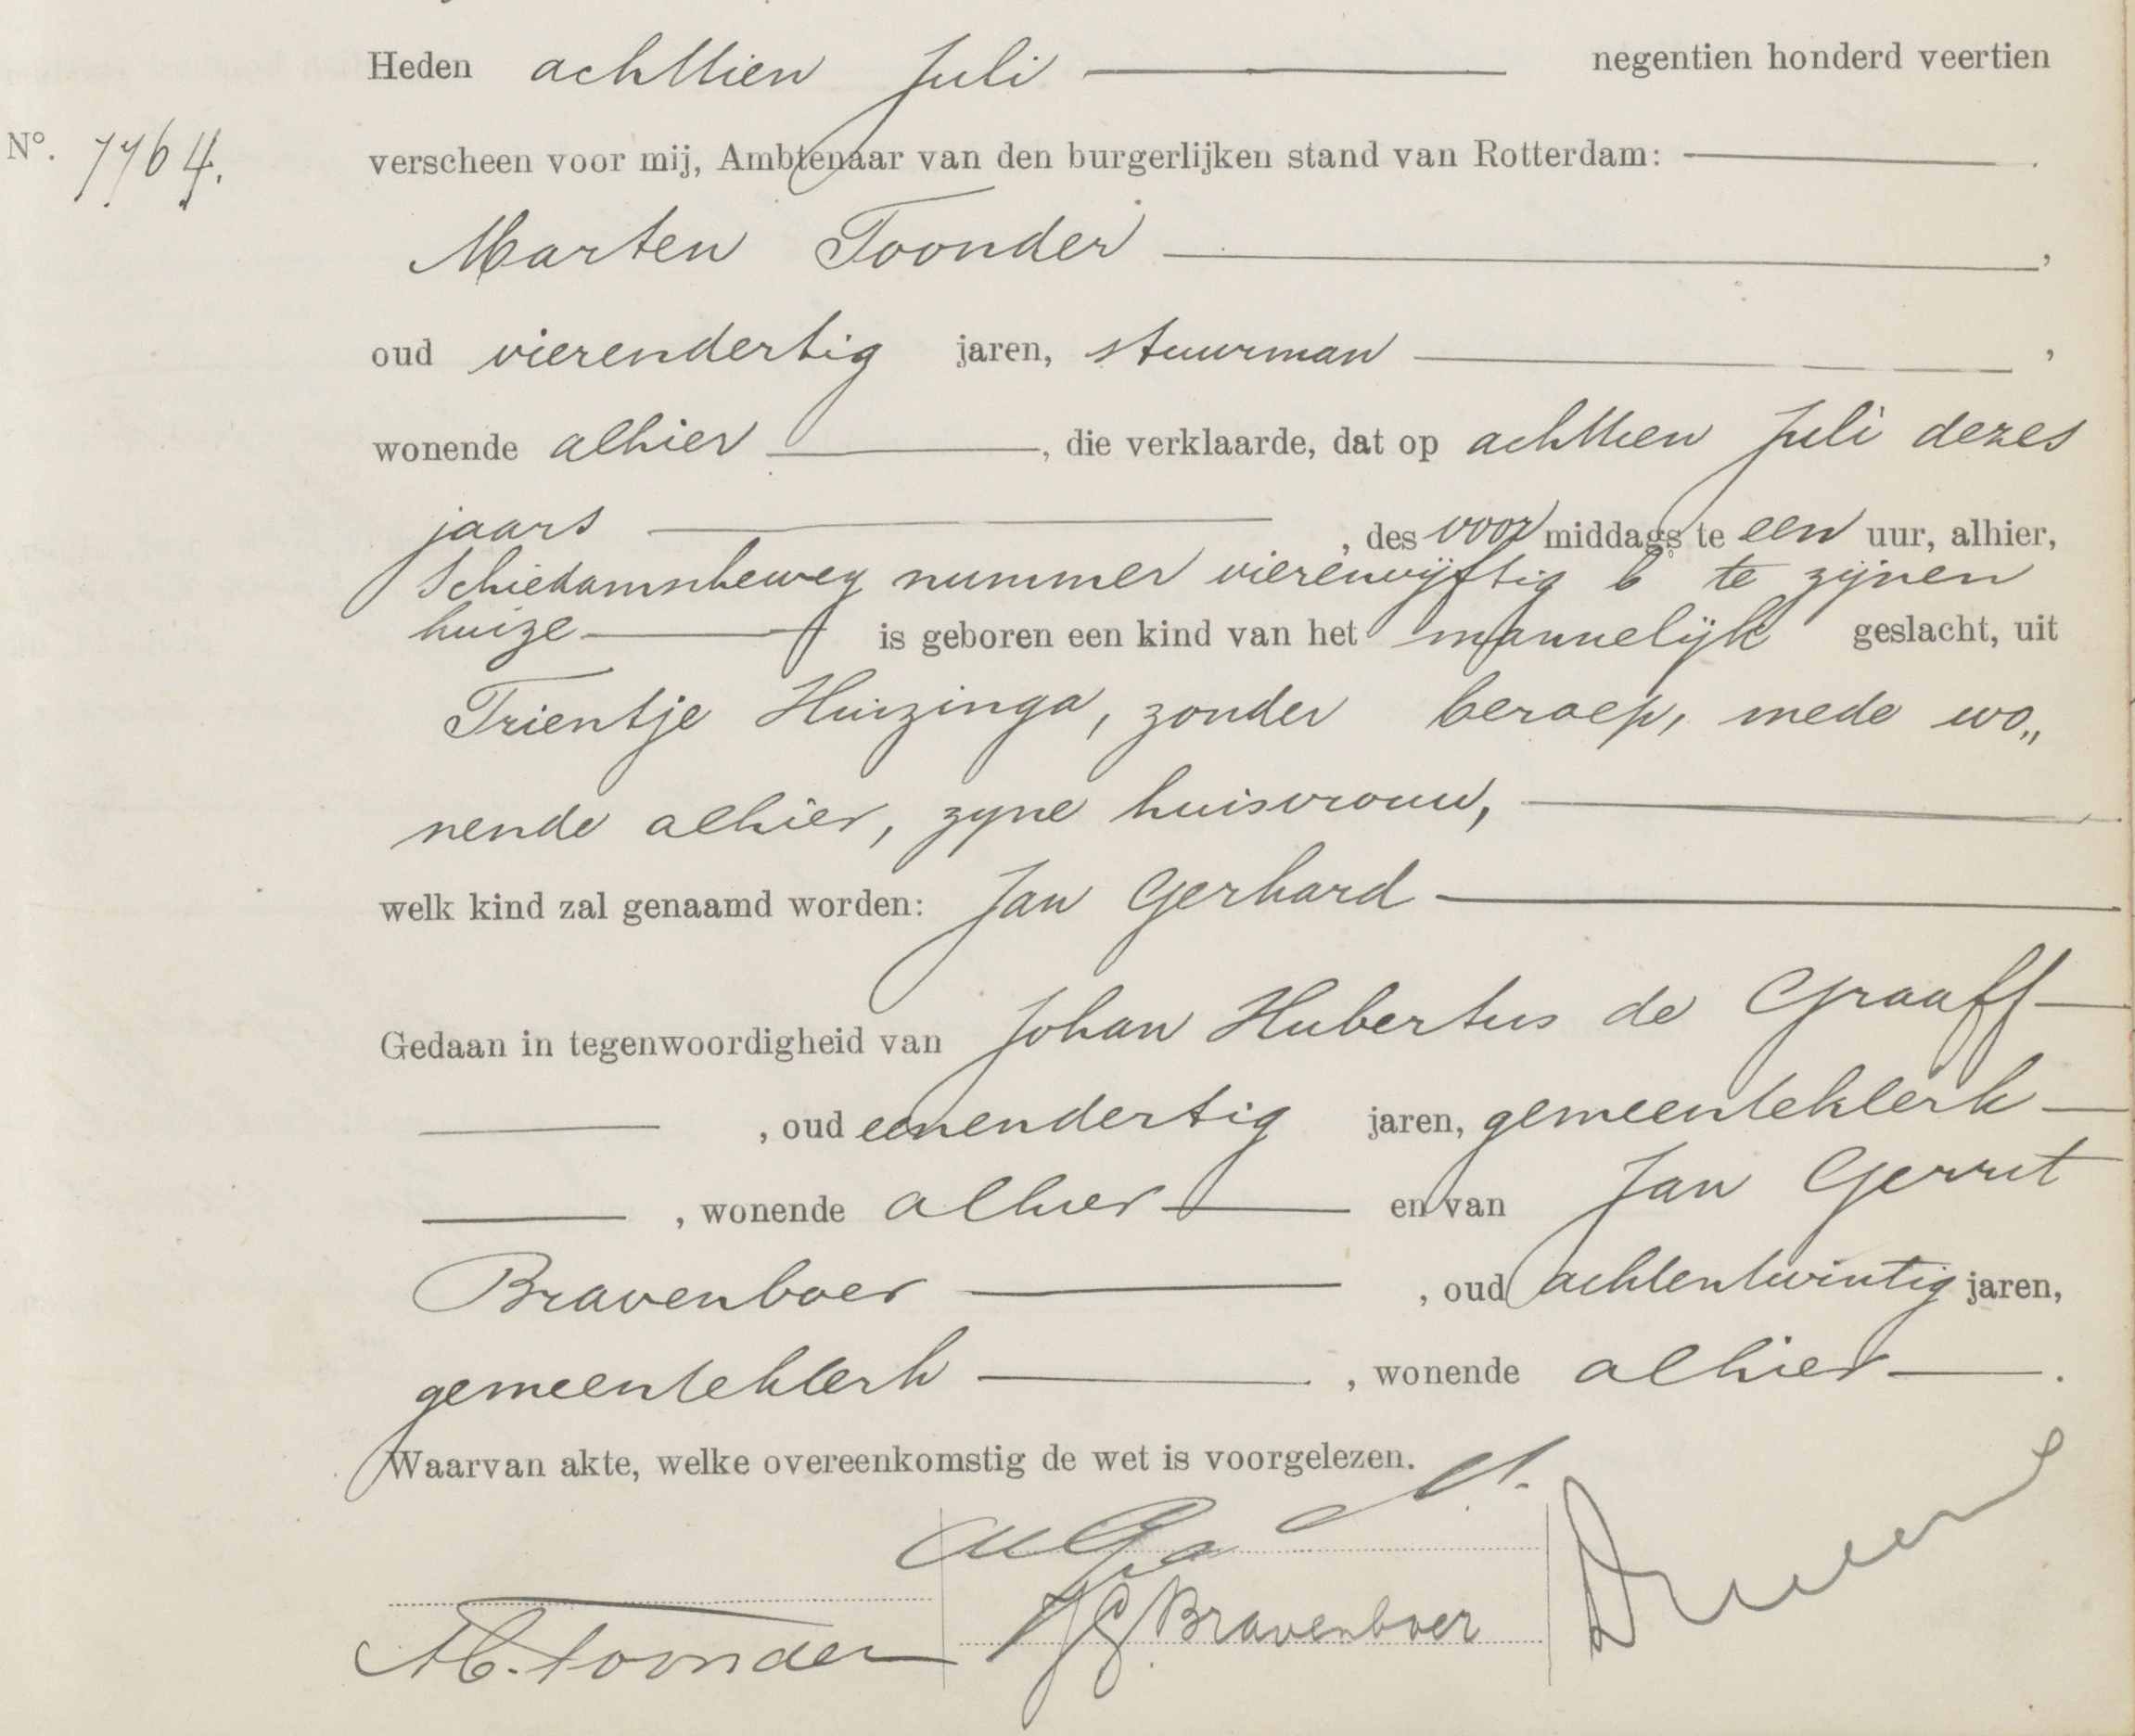 Heden achttien Juli negentien honderd veertien
No. 7764.
verscheen voor mij, Ambtenaar van den burgerlijken stand van Rotterdam:
Marten Toonder,
oud vierendertig jaren, stuurman,
wonende alhier, die verklaarde, dat op achttien Juli dezes
jaars, des voor middags te een uur, alhier,
Schiedamscheweg nummer vierenvijftig b te zijnen
huize is geboren een kind van het mannelijk geslacht, uit
Trientje Huizinga, zonder beroep, mede wo„
nende alhier, zyne huisvrouw,
welk kind zal genaamd worden: Jan Gerhard
Gedaan in tegenwoordigheid van Johan Hubertus de Graaff
, oud eenendertig jaren, gemeenteklerk
, wonende alhier en van Jan Gerrit
Bravenboer, oud achtentwintig jaren,
gemeenteklerk, wonende alhier.
Waarvan akte, welke overeenkomstig de wet is voorgelezen.
M. Toonder JGBravenboer